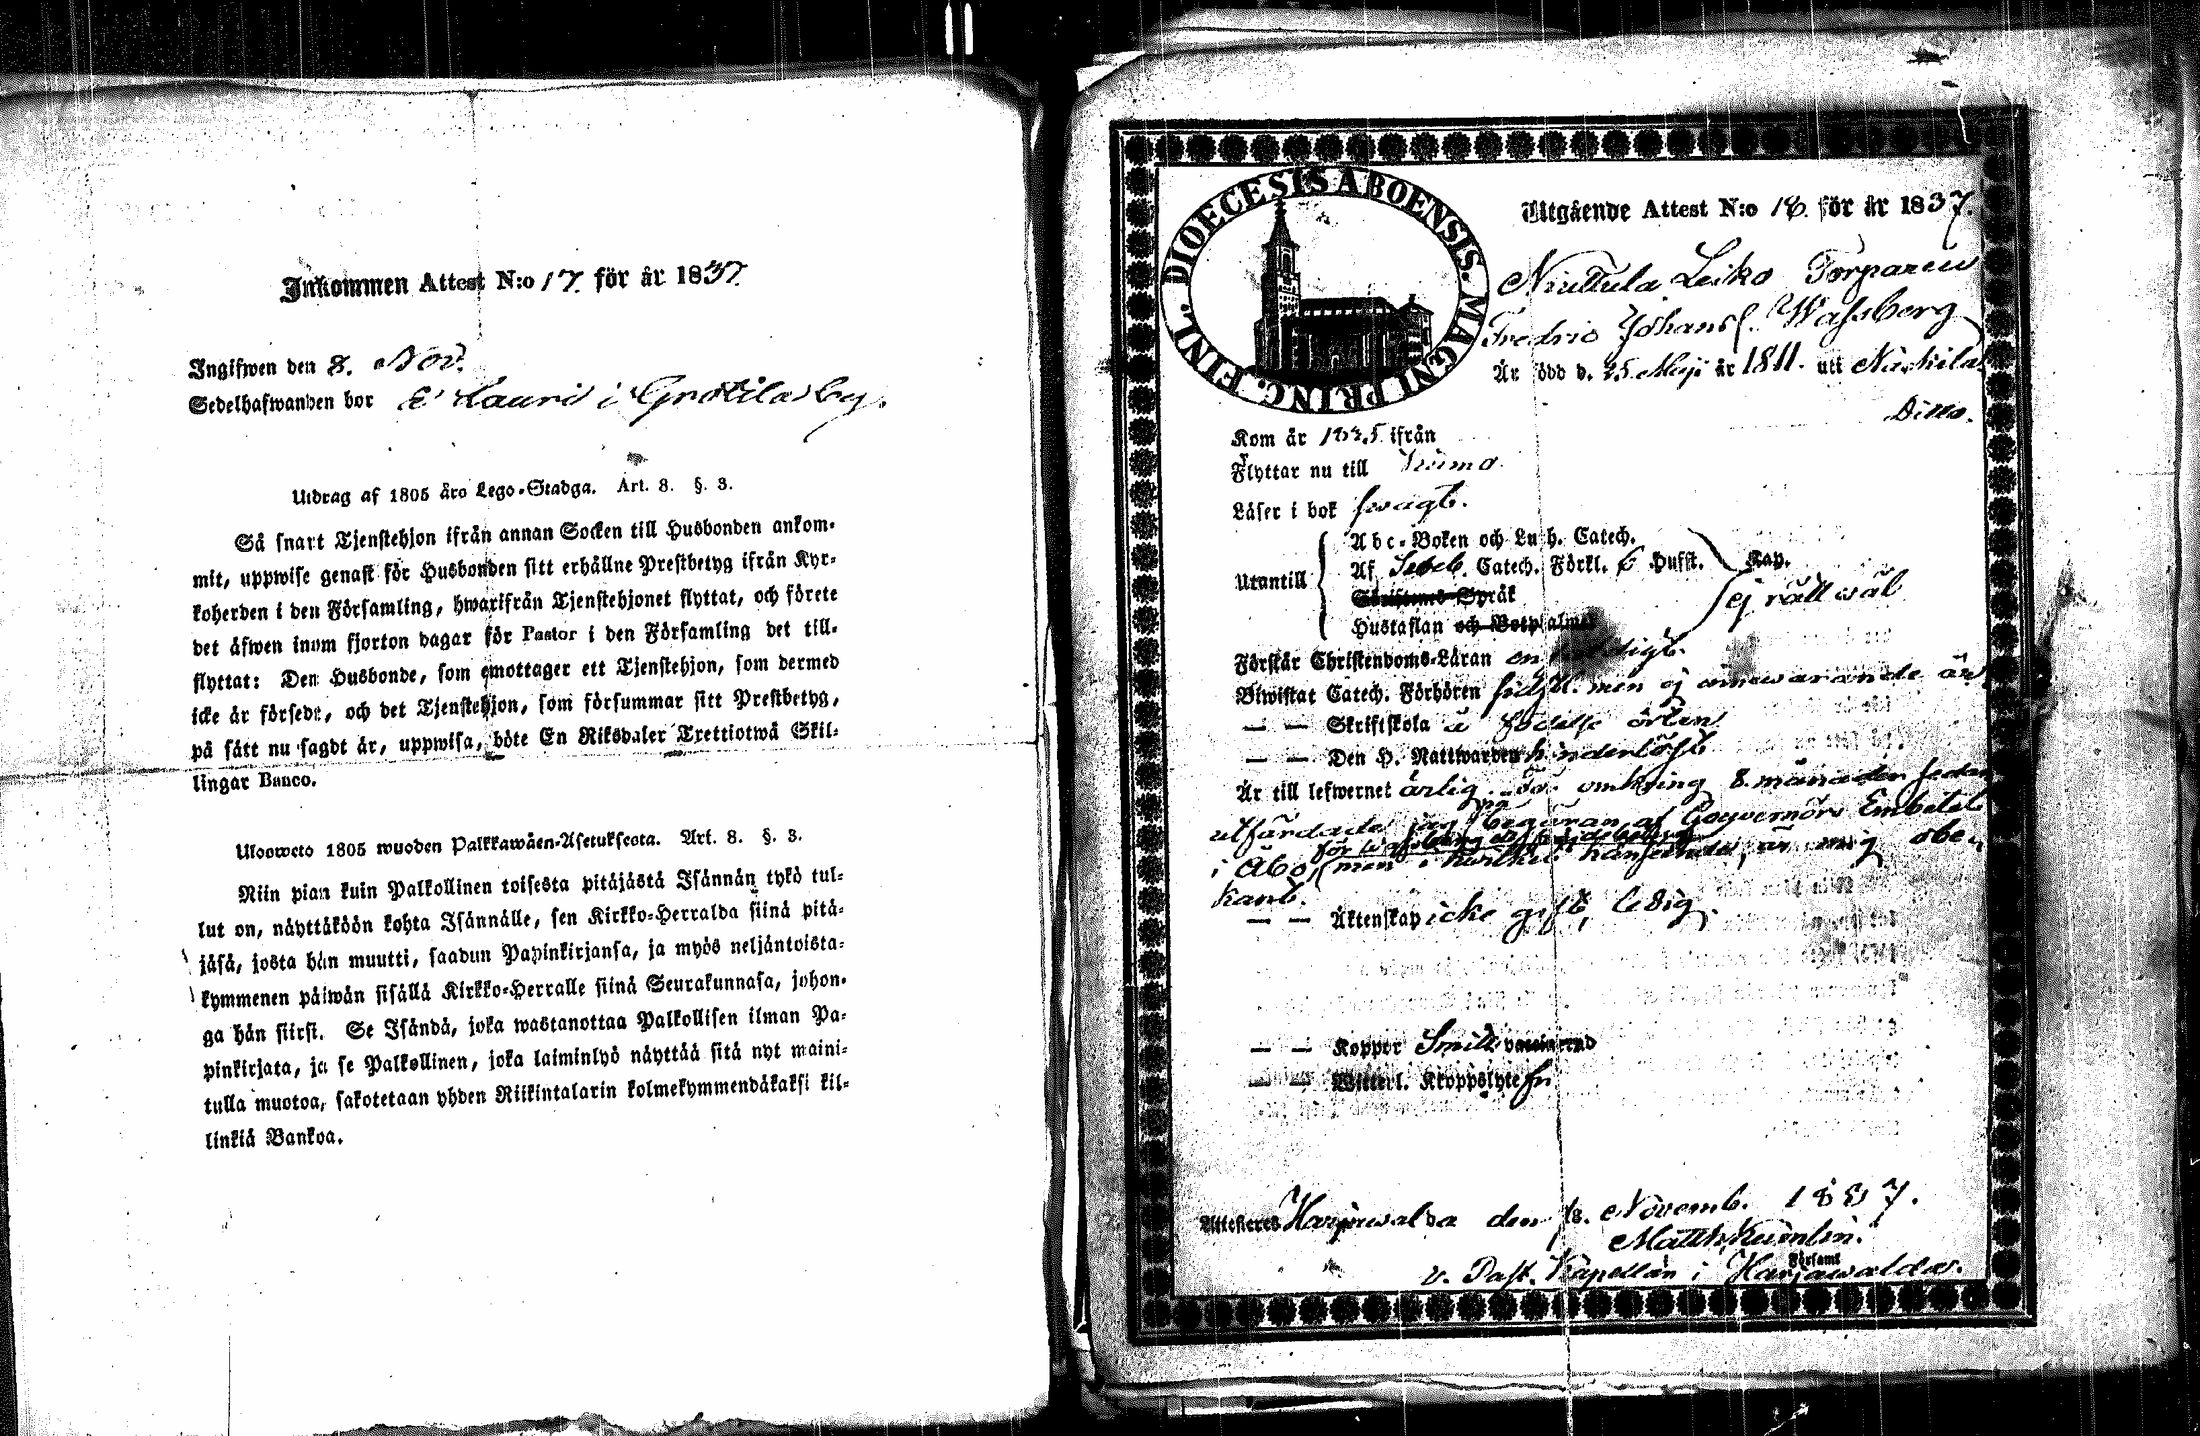 Inkommen Attest N:o 17. för år 1837.
Ingifwen den 8. Nov.
Sedelhafwanden bor Lauri i Grötila by.
Utdrag af 1805 års Lego-Stadga. Art. 8. §. 3.
Så snart Tjenstehjon ifrån annan Socken till Husbonden ankom-
mit, uppwise genast för Husbonden sitt erhållne Prestbetyg ifrån Kyr-
koherden i den Församling, hwarifrån Tjenstehjonet flyttat, och förete
det äfwen inom fjorton dagar för Pastor i den Församling det till-
flyttat: Den Husbonde, som emottager ett Tjenstehjon, som dermed
icke är försedt, och det Tjenstehjon, som försummar sitt Prestbetyg,
på sätt nu sagdt är, uppwisa, böte En Riksdaler Trettiotwå Skil-
lingar Banco.
Uloswets 1805 wuoden Palkkawäen-Asetuksesta. Art. 8. §. 3.
Niin pian kuin Palkollinen toisesta pitäjästä Isännän tykö tul-
lut on, näyttäköön kohta Isännälle, sen Kirkko-Herralda siinä pitä-
jäsä, josta hän muutti, saadun Papinkirjansa, ja myös neljäntoista-
kymmenen päiwän sisällä Kirkko-Herralle siinä Seurakunnasa, johon-
ga hän siirsi. Se Isändä, joka wastanottaa Palkollisen ilman Pa-
pinkirjata, ja se Palkollinen, joka laiminlyö näyttää sitä nyt maini-
tulla muotoa, sakotetaan yhden Riikintalarin kolmekymmendäkaksi kil-
linkiä Bankoa.
DIOECESIS ABOENSIS. MAGNI PRINC. FINL.
Utgående Attest N:o 18. för år 1837.
Niuttula Leiko Torparen
Fredric Johanss. Wassberg
Är född d. 25 Maji år 1811. uti Nackila
Ditto.
Kom år 1835 ifrån
Flyttar nu till Kiumo.
Läser i bok swagt.
Utantill
Abc-Boken och Luth. Catech.
Af Sebel. Catech. Förkl. 6 Hufst. Kap.
Skriftenes Språk
Hustaflan och Botpsalmer
ej rätt wäl
Förstår Christendoms-Läran enfaldigt.
Biwistat Catech. Förhören men ej innewarande år
— — Skriftskola å födelse orten
— — Den H. Nattwarden hinderlöst
Är till lefwernet ärlig. omkring 8 månader sedan
utfärdade jag på begäran af Gouvernörs Embetet
i Åbo, för Wassberg men i hwilket hänseende, är mig obe-
kant.
— — Äktenskap icke gift, ledig.
— — Koppor Smitt vaccinerad
— — Witterl. Kroppslyte fri
Attesteres Harjawalda den 18. Novemb. 1837.
Matth. Kumlin.
v. Past. Kapellan i Harjawalda Församl.